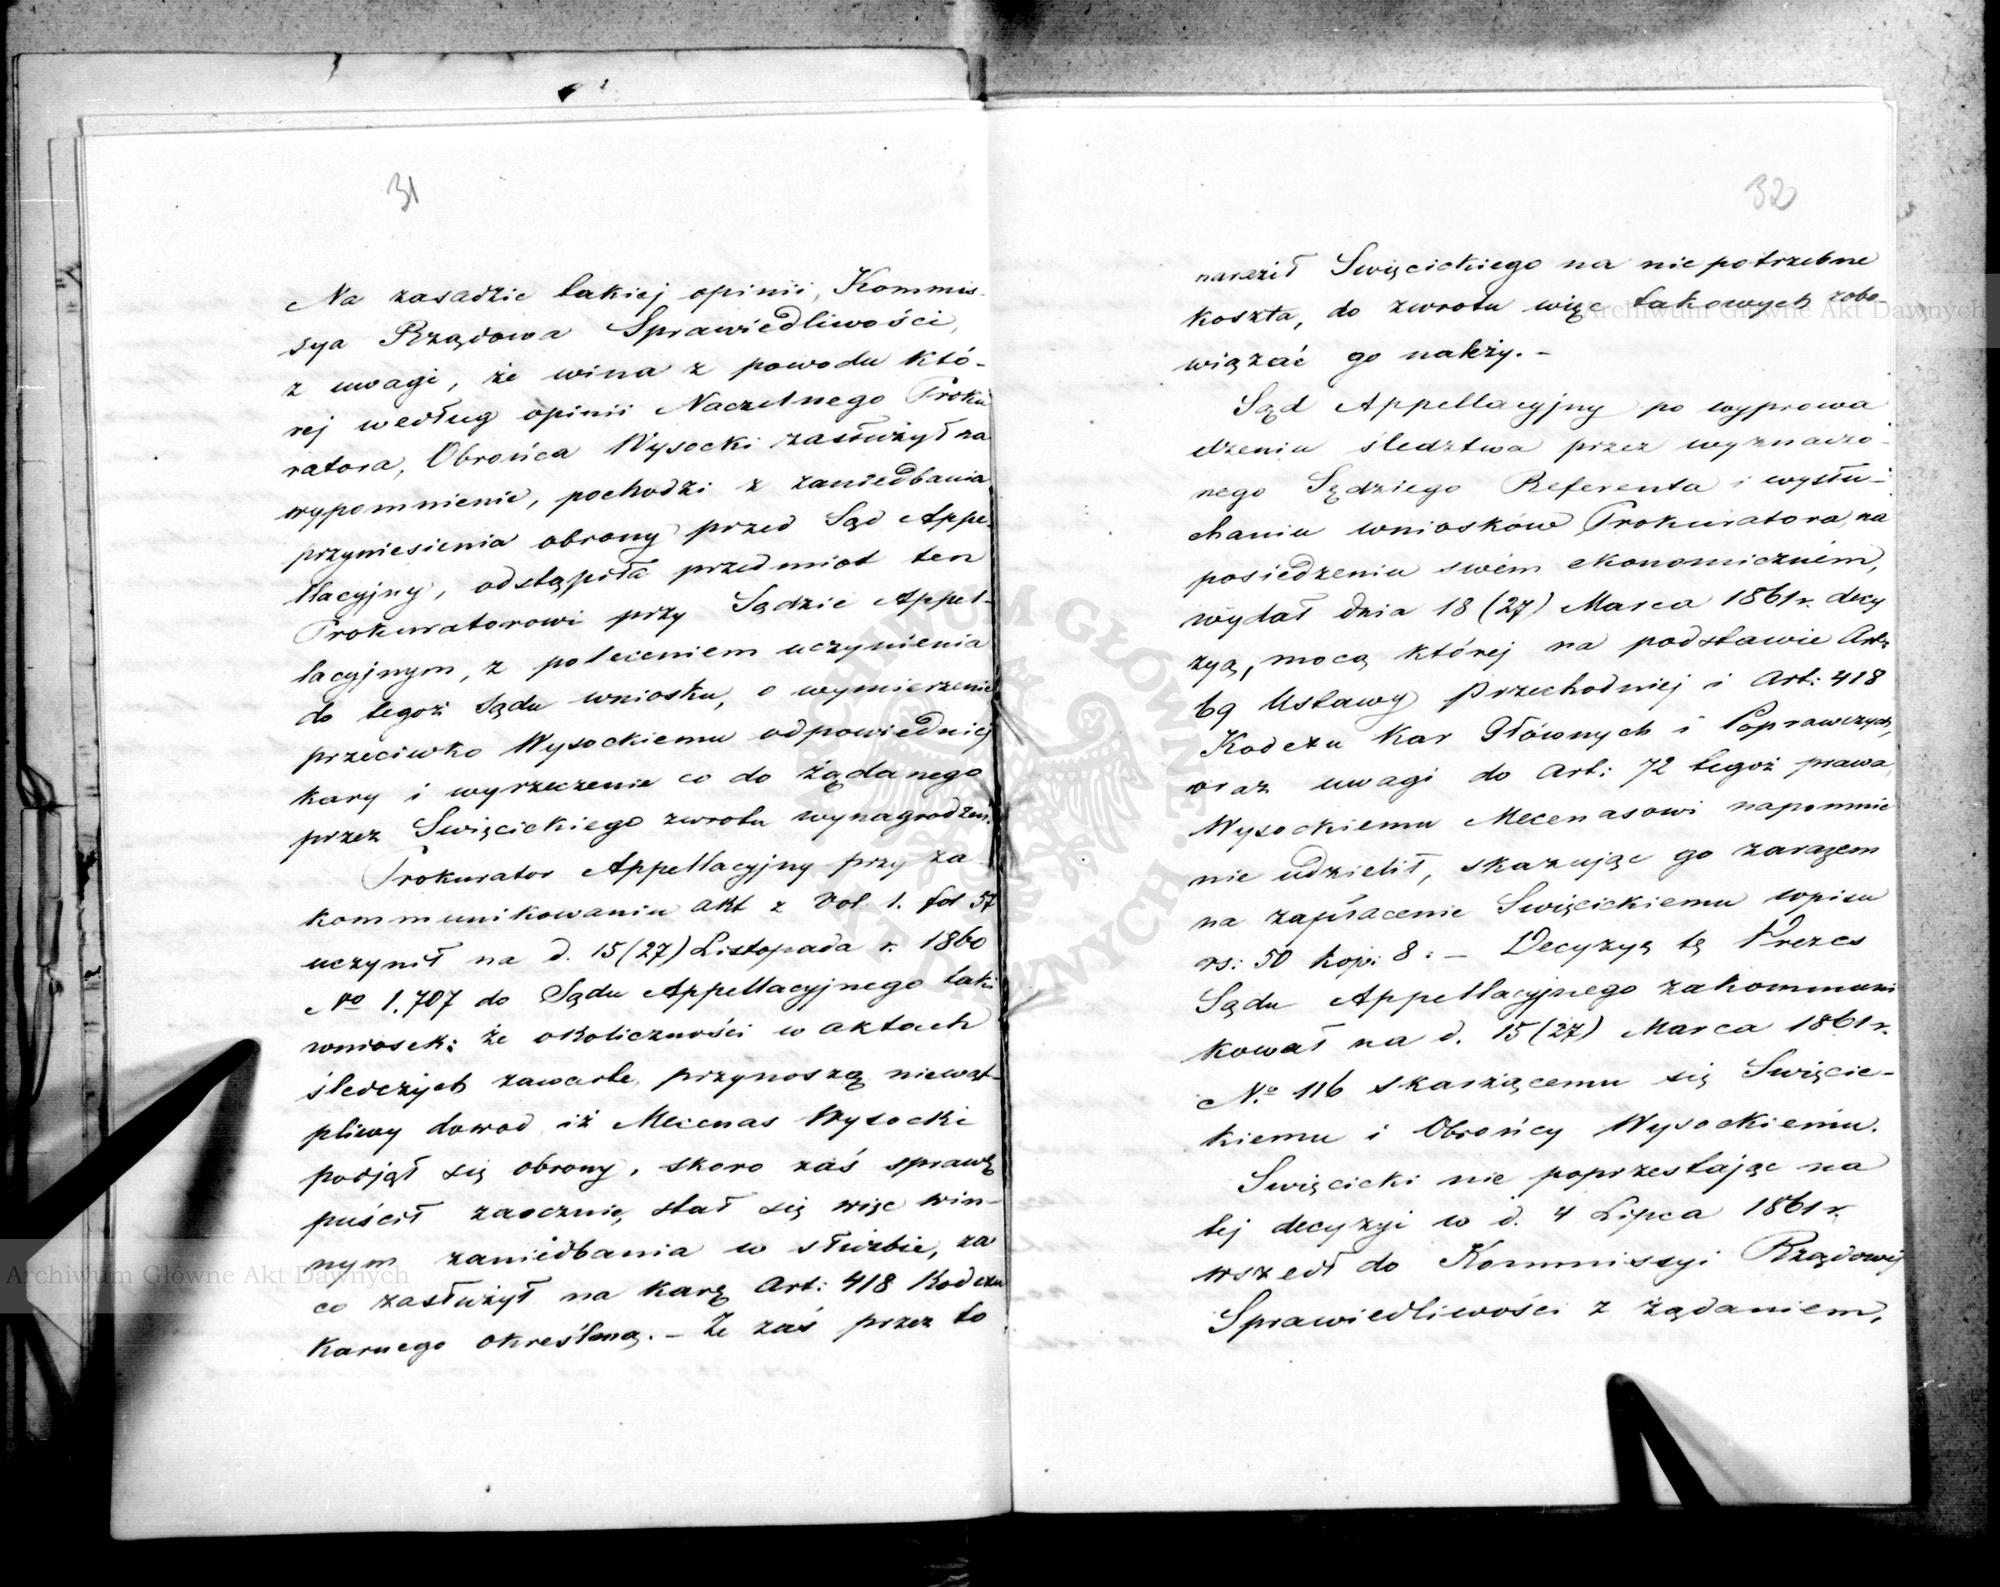 31
Na zasadzie takiej opinii, Kommis-
sya Rządowa Sprawiedliwości,
z uwagi, że wina z powodu któ-
rej według opinii Naczelnego Proku
ratora, Obrońca Wysocki zasłużył na
wypomnienie, pochodzi z zaniedbania
przyniesienia obrony przed Sąd Appe-
llacyjny, odstąpiła przedmiot ten
Prokuratorowi przy Sądzie Appel-
lacyjnym, z poleceniem uczynienia
do tegoż Sądu wniosku, o wymierzenie
przeciwko Wysockiemu odpowiedniej
kary i wyrzeczenie co do żądanego
przez Swięcickiego zwrotu wynagrodzen.
Prokurator Appellacyjny przy za
kommunikowaniu akt z Vol. 1. fol 57
uczynił na d. 15 (27) Listopada r. 1860
No 1,707 do Sądu Appellacyjnego taki
wniosek: że okoliczności w aktach
śledczych zawarte, przynoszą niewąt-
pliwy dowod iż Mecenas Wysocki
podjął się obrony, skoro zaś sprawę
puścił zaocznie, stał się więc win-
nym zaniedbania w służbie, za
co zasłużył na karę Art: 418 Kodexu
Karnego określoną. – Że zaś przez to
32
naraził Swięcickiego na niepotrzebne
koszta, do zwrotu więc takowych zobo-
wiązać go należy. –
Sąd Appellacyjny po wyprowa
dzeniu śledztwa przez wyznaczo-
nego Sędziego Referenta i wysłu-
chaniu wniosków Prokuratora, na
posiedzeniu swém ekonomiczném,
wydał dnia 18 (27) Marca 1861 r. decy
zyą, mocą której na podstawie Art:
69 Ustawy Przechodniej i Art: 418
Kodexu Kar Głównych i Poprawczych,
oraz uwagi do Art: 72 tegoż prawa,
Wysockiemu Mecenasowi napomnie
nie udzielił, skazując go zarazem
na zapłacenie Swięcickiemu wpisu
rs: 50 kop: 8. – Decyzyą tę Prezes
Sądu Appellacyjnego zakommuni
kował na d. 15 (27) Marca 1861 r.
No 116 skarżącemu się Swięcic-
kiemu i Obrońcy Wysockiemu.
Swięcicki nie poprzestając na
tej decyzyi w d. 4 Lipca 1861 r.
wszedł do Kommissyi Rządowej
Sprawiedliwości z żądaniem,
Archiwum Główne Akt Dawnych
Archiwum Główne Akt Dawnych
ARCHIWUM GŁÓWNE AKT DAWNYCH